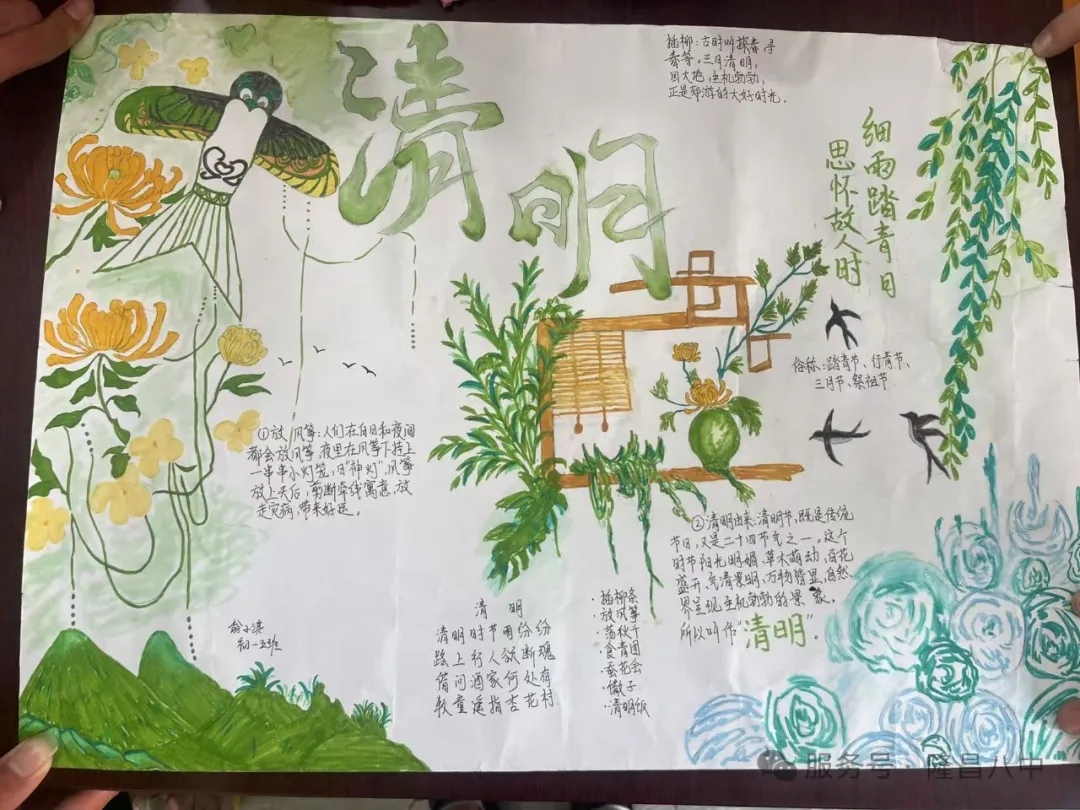 清明
插柳：古时叫探春寻
春等。三月清明，
回大地，生机勃勃，
正是郊游的大好时光。
细雨踏青日
思怀故人时
俗称：踏青节、行青节、
三月节、祭祖节
①放风筝：人们在白日和夜间
都会放风筝，夜里在风筝下挂上
一串串小灯笼，曰“神灯”，风筝
放上天后，剪断牵线寓意，放
走灾病，带来好运。
②清明由来：清明节，既是传统
节日，又是二十四节气之一。这个
时节阳光明媚，草木萌动，百花
盛开，气清景明，万物皆显，自然
界呈现生机勃勃的景象。
所以叫作“清明”。
清 明
清明时节雨纷纷
路上行人欲断魂
借问酒家何处有
牧童遥指杏花村
·插柳条
·放风筝
·荡秋千
·食青团
·蚕花会
·馓子
·清明饭
初一五班
服务号·隆昌八中